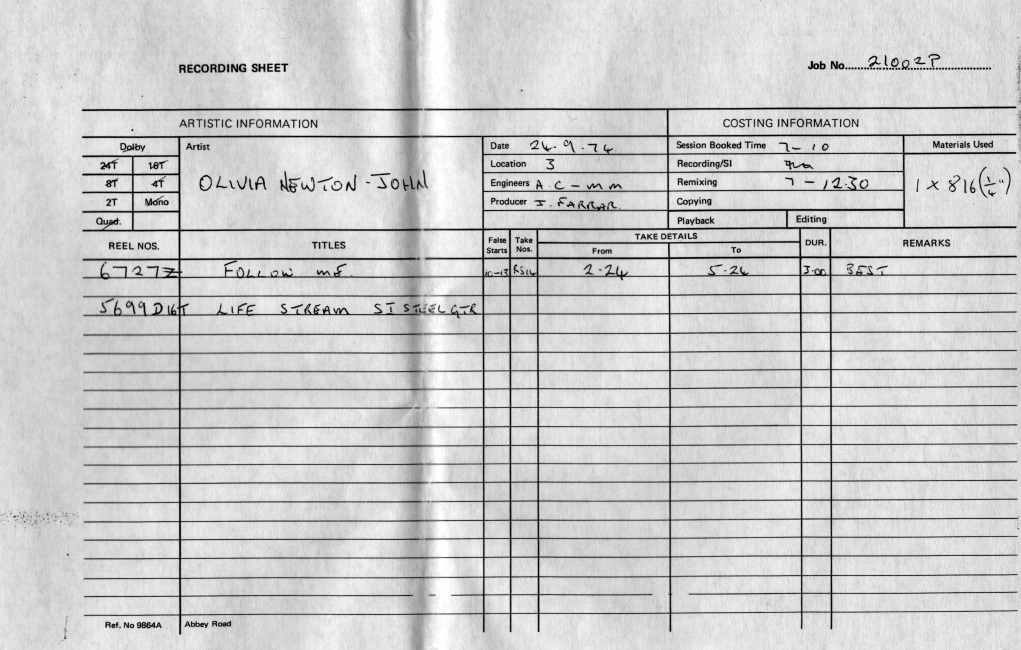 RECORDING SHEET
Job No. 21002P
ARTISTIC INFORMATION
COSTING INFORMATION
Dolby
24T 16T
8T 4T
2T Mono
Quad.
Artist
OLIVIA NEWTON-JOHN
Date 24.9.74
Location 3
Engineers A C - m m
Producer J. FARRAR.
Session Booked Time 7-10
Recording/SI
Remixing 7-12.30
Copying
Playback Editing
Materials Used
1 x 816 (1/4")
REEL NOS. TITLES False Starts Take Nos. TAKE DETAILS From To DUR. REMARKS
67272 FOLLOW ME. 10-13 RS14 2.24 5.24 3.00 BEST
5699D16T LIFE STREAM SI STEEL GTR
Ref. No 9864A Abbey Road